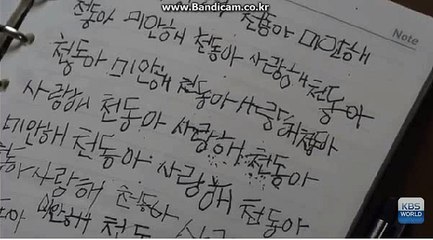 www.Bandicam.co.kr
천동아 미안해
천동아 미안해 천동아 사랑해 천동아
Note
천동아 미안해 천동아 사랑해
사랑해 천동아 사랑해 천동아
미안해 천동아 사랑해 천동아
사랑해 천동아 사랑해 천동아
미안해 천동
KBS
WORLD